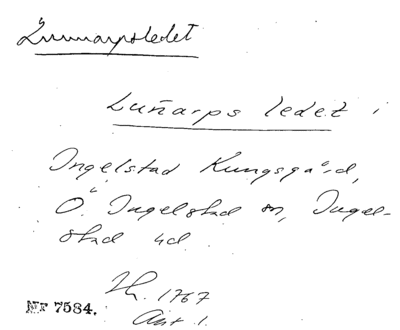 Lunnarpsledet
Lun̄arps ledet i
Ingelstad Kungsgård,
Ö. Ingelstad sn, Ingel-
stad hd.
Lh. 1767
Akt 1.
Nr 7584.